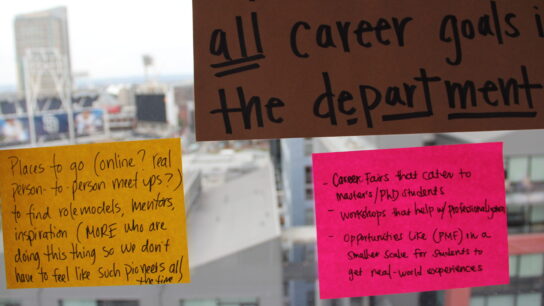 all career goals i
the department
Places to go (online? real
person-to-person meet ups?)
to find role models, mentors,
inspiration (MORE who are
doing this thing so we don't
have to feel like such pioneers all
the time
- Career Fairs that cater to
master's/PhD students
- Workshops that help w/ professionalization
- Opportunities like (PMF) in a
smaller scale for students to
get real-world experiences